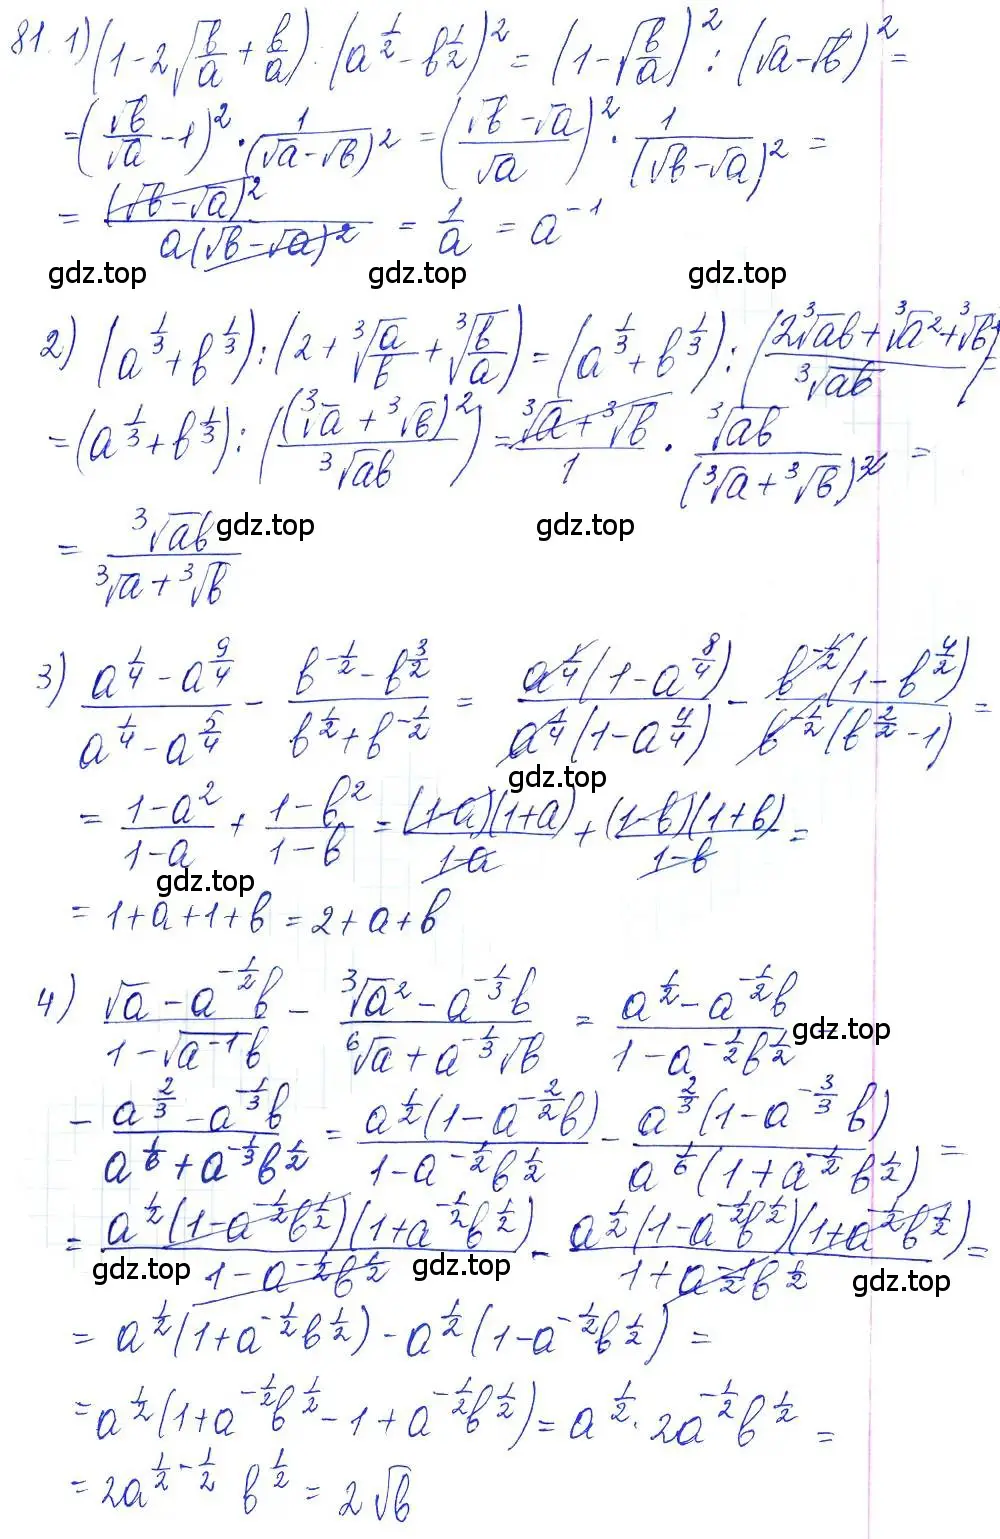 81. 1) (1-2√(b/a) + b/a) : (a^(1/2) - b^(1/2))^2 = (1-√(b/a))^2 : (√a-√b)^2 =
= (√b/√a - 1)^2 · 1/(√a-√b)^2 = ((√b-√a)/√a)^2 · 1/(√b-√a)^2 =
= (√b-√a)^2/(a(√b-√a)^2) = 1/a = a^(-1)
gdz.top gdz.top gdz.top
2) (a^(1/3) + b^(1/3)) : (2 + ∛(a/b) + ∛(b/a)) = (a^(1/3) + b^(1/3)) : ((2∛ab + ∛a^2 + ∛b^2)/∛ab) =
= (a^(1/3) + b^(1/3)) : ((∛a + ∛b)^2/∛ab) = (∛a + ∛b)/1 · ∛ab/(∛a + ∛b)^2 =
gdz.top gdz.top
= ∛ab/(∛a + ∛b)
3) (a^(1/4) - a^(9/4))/(a^(1/4) - a^(5/4)) - (b^(-1/2) - b^(3/2))/(b^(1/2) + b^(-1/2)) = (a^(1/4)(1-a^(8/4)))/(a^(1/4)(1-a^(4/4))) - (b^(-1/2)(1-b^(4/2)))/(b^(-1/2)(b^(2/2) - 1)) =
gdz.top
= (1-a^2)/(1-a) + (1-b^2)/(1-b) = ((1-a)(1+a))/(1-a) + ((1-b)(1+b))/(1-b) =
gdz.top
= 1+a+1+b = 2+a+b
4) (√a - a^(-1/2)b)/(1-√(a^(-1))b) - (∛a^2 - a^(-1/3)b)/(⁶√a + a^(-1/3)√b) = (a^(1/2) - a^(-1/2)b)/(1-a^(-1/2)b^(1/2)) -
gdz.top
- (a^(2/3) - a^(-1/3)b)/(a^(1/6) + a^(-1/3)b^(1/2)) = (a^(1/2)(1-a^(-2/2)b))/(1-a^(-1/2)b^(1/2)) - (a^(2/3)(1-a^(-3/3)b))/(a^(1/6)(1+a^(-1/2)b^(1/2))) =
= (a^(1/2)(1-a^(-1/2)b^(1/2))(1+a^(-1/2)b^(1/2)))/(1-a^(-1/2)b^(1/2)) - (a^(1/2)(1-a^(-1/2)b^(1/2))(1+a^(-1/2)b^(1/2)))/(1+a^(-1/2)b^(1/2)) =
gdz.top gdz.top gdz.top
= a^(1/2)(1+a^(-1/2)b^(1/2)) - a^(1/2)(1-a^(-1/2)b^(1/2)) =
= a^(1/2)(1+a^(-1/2)b^(1/2) - 1 + a^(-1/2)b^(1/2)) = a^(1/2) · 2a^(-1/2)b^(1/2) =
= 2a^(1/2 - 1/2) b^(1/2) = 2√b